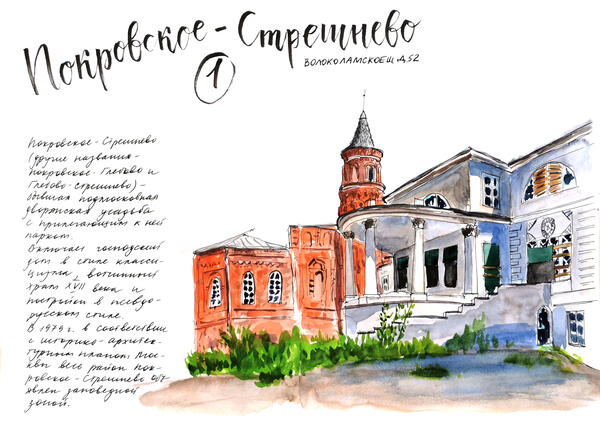 Покровское-Стрешнево
Волоколамское ш. д.52
1
Покровское-Стрешнево
(другие названия-
Покровское-Глебово и
Глебово-Стрешнево)-
бывшая подмосковная
дворянская усадьба
с прилегающим к ней
парком.
Включает господский
дом в стиле класси-
цизма, вотчинный
храм XVII века и
постройки в псевдо-
русском стиле.
В 1979 г. в соответствие
с историко-архитек-
турным планом Мос-
квы весь район Пок-
ровское-Стрешнево объ-
явлен заповедной
зоной.